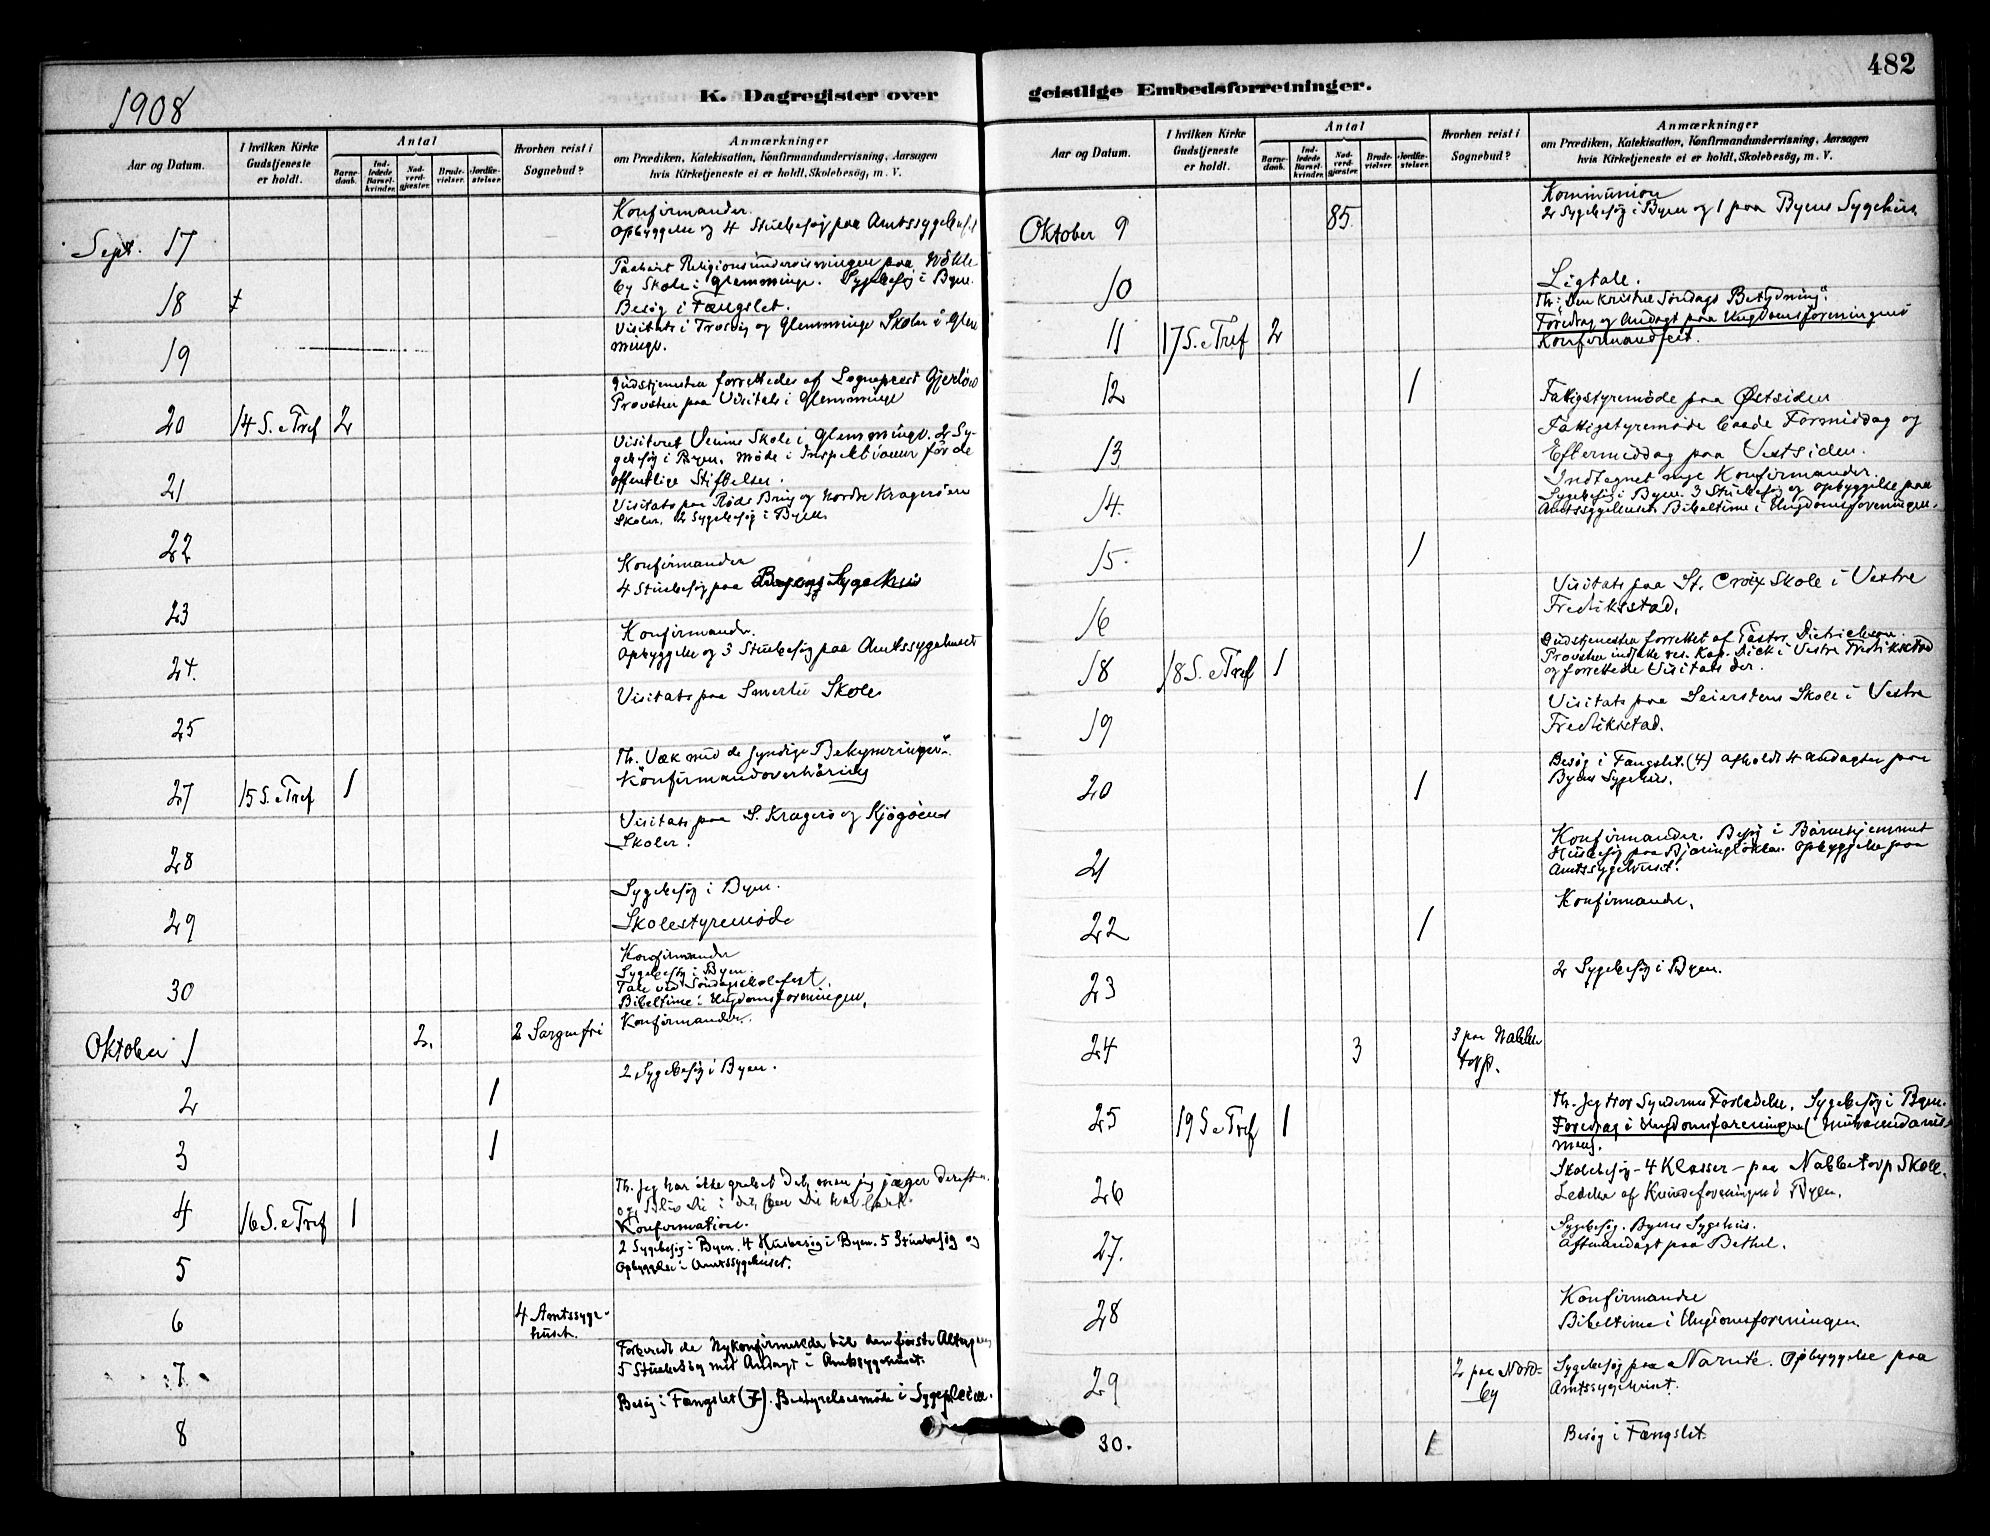 482
1908
K. Dagregister over
geistlige Embedsforretninger.
Aar og Datum.
I hvilken Kirke Gudstjeneste er holdt.
Antal
Barne-daab.
Ind-ledede Barsel-kvinder.
Nad-verd-gjæster.
Brude-vielser.
Jordfæ-stelser.
Hvorhen reist i Sognebud?
Anmærkninger
om Prædiken, Katekisation, Konfirmandundervisning, Aarsagen
hvis Kirketjeneste ei er holdt, Skolebesøg, m. V.
Sept. 17
Konfirmander.
Opbyggelse og 4 Stuebesøg paa Amtssygehuset
18
Paahørt Religionsundervisningen paa
by Skole i Glemminge. Sygebesøg i Byen.
Besøg i Fængslet.
19
Visitats i Trosvig og Glemminge Skoler i Glem
minge.
20 14 S. e Tref 2
Gudstjenesten forrettedes af Sogneprest Gjerløw
Provsten paa Visitats i Glemminge
21
Visiteret Skole i Glemminge. 2 Sy-
gebesøg i Byen. Møde i Inspektionen for de
offentlige Stiftelser.
22
Visitats paa Røds Brug og Nordre Kragerøen
Skoler. 2 Sygebesøg i Byen.
23
Konfirmander
4 Stuebesøg paa Byens Sygehus
24.
Konfirmander.
Opbyggelse og 3 Stuebesøg paa Amtssygehuset
25
Visitats paa Smertu Skole
27 15 S. e Tref 1
Th. Væk med de syndige Bekymringer".
Konfirmandoverhøring
28
Visitats paa S. Kragerø og Kjøgøens
Skoler.
29
Sygebesøg i Byen.
Skolestyremøde
30
Konfirmander
Sygebesøg i Byen.
Tale ved Søndagsskolefest.
Bibeltime i Ungdomsforeningen.
Oktober 1 2. 2 Sorgenfri
Konfirmander.
2 1
2 Sygebesøg i Byen.
3 1
4 16 S. e Tref 1
Th. Jeg har ikke grebet det, men jeg jager derefter.
og Bliv du i det, som du har lært.
Konfirmation.
5
2 Sygebesøg i Byen. 4 Husbesøg i Byen. 5 Stuebesøg og
Opbyggelse i Amtssygehuset.
6 4 Amtssyge-
huset.
7
Forberedt de Nykonfirmerede til den første Altergang
5 Stuebesøg med Andagt i Amtssygehuset.
8
Besøg i Fængslet (7). Bestyrelsesmøde i Sygepleien.
Aar og Datum.
I hvilken Kirke Gudstjeneste er holdt.
Antal
Barne-daab.
Ind-ledede Barsel-kvinder.
Nad-verd-gjæster.
Brude-vielser.
Jordfæ-stelser.
Hvorhen reist i Sognebud?
Anmærkninger
om Prædiken, Katekisation, Konfirmandundervisning, Aarsagen
hvis Kirketjeneste ei er holdt, Skolebesøg, m. V.
Oktober 9 85.
Kommunion
2 Sygebesøg i Byen og 1 paa Byens Sygehus
10
Ligtale.
11 17 S. e Tref 2
Th: "Den kristne Søndags Betydning".
Foredrag og Andagt paa Ungdomsforeningens
Konfirmandfest.
12 1
Fattigstyremøde paa Østsiden
13
Fattigstyremøde baade Formiddag og
Eftermiddag paa Vestsiden.
14.
Indtegnet nye Konfirmander.
Sygebesøg i Byen. 3 Stuebesøg og Opbyggelse paa
Amtssygehuset. Bibeltime i Ungdomsforeningen.
15. 1
16
Visitats paa St. Croix Skole i Vestre
Fredriksstad.
18 18 S. e Tref 1
Gudstjenesten forrettet af Pastor Dietrichson.
Provsten indsatte res. Kap. Dick i Vestre Fredriksstad
og forrettede Visitats der.
19
Visitats paa Seierstens Skole i Vestre
Fredriksstad.
20 1
Besøg i Fængslet. (4) Afholdt 4 Andagter paa
Byens Sygehus.
21
Konfirmander. Besøg i Børnehjemmet
Husbesøg paa Bjørneløkken. Opbyggelse paa
Amtssygehuset.
22 1
Konfirmander.
23
2 Sygebesøg i Byen.
24 3 3 paa Nabbe
torp.
25 19 S e Tref 1
Th. Jeg tror Syndernes Forladelse. Sygebesøg i Byen.
Foredrag i Ungdomsforeningen (Muhamedanis-
men).
26
Skolebesøg - 4 Klasser - paa Nabbetorp Skole.
Ledelse af Kvindeforeningen i Byen.
27.
Sygebesøg. Byens Sygehus.
Aftenandagt paa Bethel.
28
Konfirmander
Bibeltime i Ungdomsforeningen.
29 2 paa Nord-
by
Sygebesøg paa Narnte. Opbyggelse paa
Amtssygehuset.
30. 1
Besøg i Fængslet.